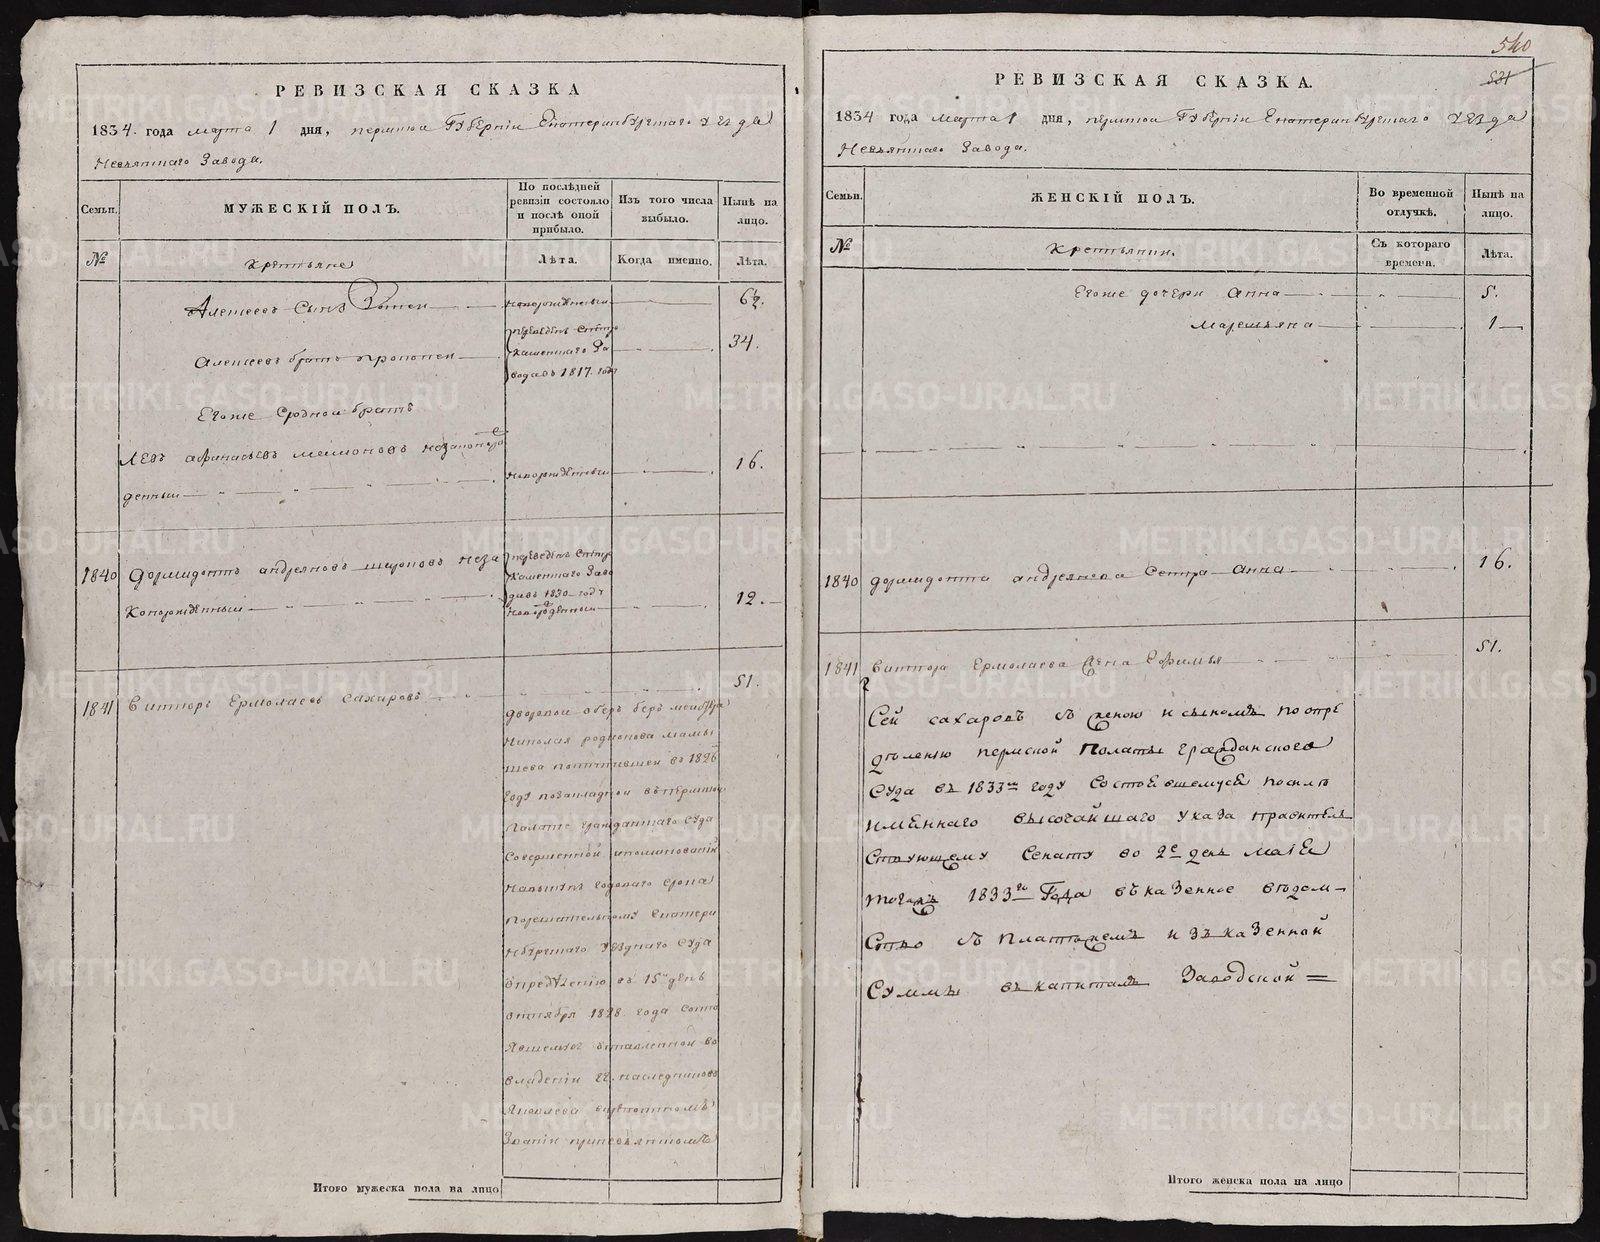 РЕВИЗСКАЯ СКАЗКА
1834. года марта 1 дня, пермской Губернiи Екатеринбургскаго уезда
Невьянскаго Завода.
Семьи.
МУЖЕСКIЙ ПОЛЪ.
По послѣдней ревизiи состояло и послѣ оной прибыло.
Изъ того числа выбыло.
Нынѣ на лицо.
№
Крестьяне
Лѣта.
Когда именно.
Лѣта.
Алексеевъ Сынъ новорожденный 6½.
Алексеевъ братъ Прокопей
переведенъ Статро
каменскаго За
вода въ 1817. году
34.
Егоже Сродной братъ
Левъ афанасьевъ незаконорож
денный новорожденный 16.
1840 Дормидонтъ андреяновъ неза
конорожденный
переведенъ
каменскаго Заво
да въ 1830 году
новорожденный
12.
1841 Викторъ Ермолаевъ Сахаровъ 51.
дворовой оберъ
Николая родионова мамы
шева поступившей въ 1826
году позакладной въ пермской
палате гражданскаго Суда
совершенной
годоваго срока
порешительному Екатери
нбургскаго Уезднаго Суда
определению въ 15 день
октября 1828 года состо
явшемуся оставленной во
владении наследниковъ
Яковлева
Званiи
Итого мужеска пола на лицо
540
531
РЕВИЗСКАЯ СКАЗКА.
1834 года марта 1 дня, пермской Губернiи Екатеринбургскаго уезда
Невьянскаго Завода.
Семьи.
ЖЕНСКIЙ ПОЛЪ.
Во временной отлучкѣ.
Нынѣ на лицо.
№
Крестьянки.
Съ котораго времени.
Лѣта.
Егоже дочери Анна 5.
Маремьяна 1
1840 дормидонта андреянова Сестра Анна 16.
1841 Виктора Ермолаева Жена Ефимья 51.
Сей сахаровъ съ женою и сыномъ по опре
дѣленiю пермской Палаты Гражданскаго
Суда въ 1833м году состоевшемуся посилѣ
имѣннаго высочайшаго указа правитель
ствующему Сенату во 2е день маiя
тогожъ 1833го Года въ казенное вѣдом-
ство съ платежемъ изъ казенной
суммы въ капиталъ Заводской =
Итого женска пола на лицо
METRIKI.GASO-URAL.RU